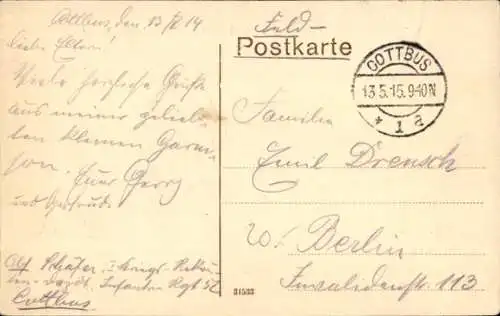 Cottbus, den 13/5 14
liebe Eltern!
Viele herzliche Grüße
aus meiner gelieb-
ten kleinen Garni-
son. Euer Georg
und Gertrud.
Schäfer, Rekru-
ten-Depot. Infanterie Rgt 52
Cottbus
Feld-
Postkarte
COTTBUS
13.5.15.9-10N
* 1 a
Familie
Emil Drensch
Berlin
Invalidenstr. 113
31533